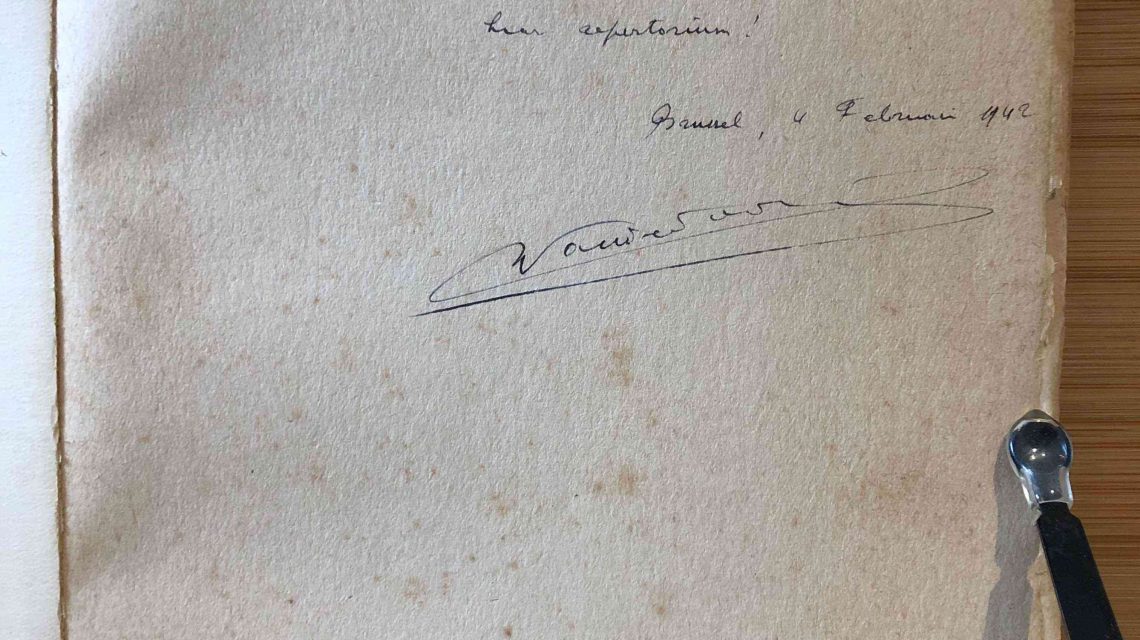 haar repertorium!
Brussel, 4 Februari 1942